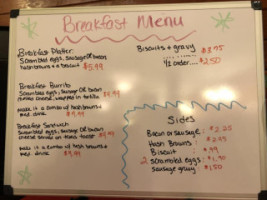 Breakfast Menu
Breakfast Platter:
Scrambled eggs, sausage OR bacon
hashbrowns + a biscuit $5.99
Biscuits + gravy $3.95
1/2 order.... $2.50
Breakfast Burrito
Scrambled eggs, sausage OR bacon
cheese, wrapped in tortilla $4.99
make it a combo w/ hashbrowns
med. drink $7.99
Breakfast Sandwich
Scrambled eggs, sausage OR bacon
cheese served on texas toast $4.99
make it a combo w/ hash browns +
med drink $7.99
Sides
Bacon or sausage: $2.25
Hash Browns: $2.95
Biscuit: $.99
2 Scrambled eggs: $1.90
Sausage gravy $1.50